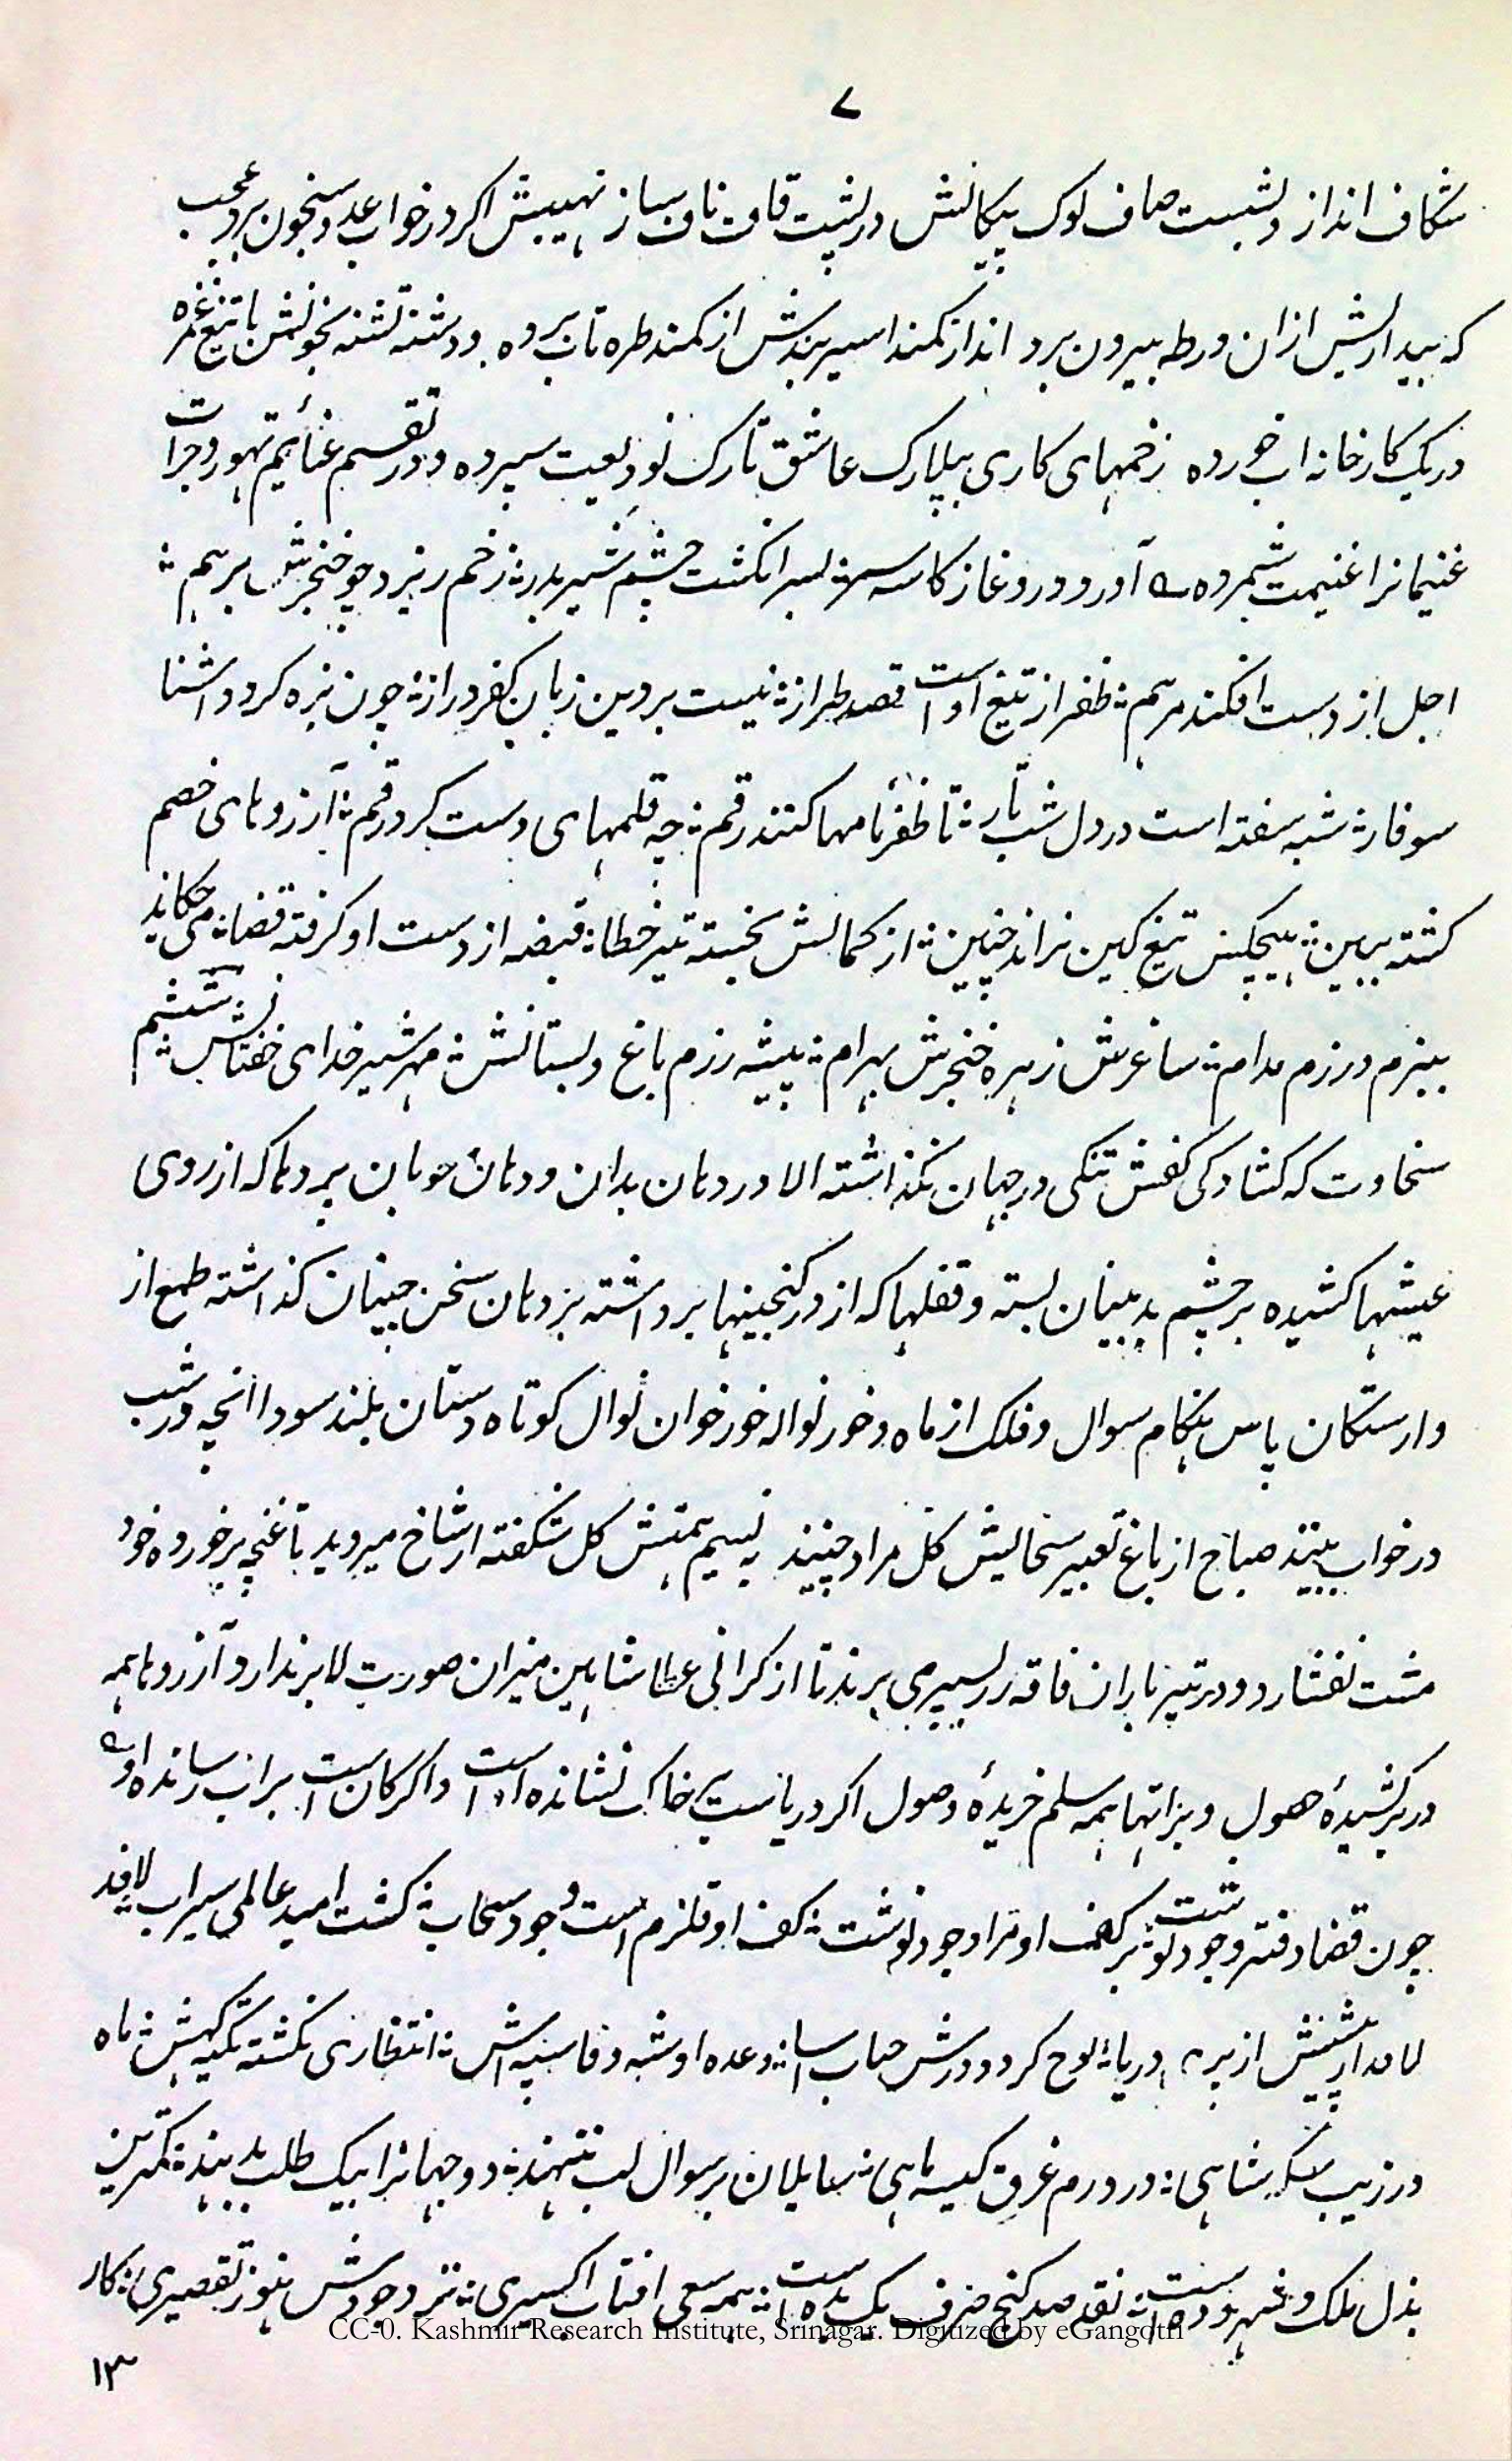 ۷
شکاف انداز و شبست صاف لوک پیکانش در پشت قاف ناف ساز نهیبش اکر در خواب عدو شبخون برد عجب
که بیداریش ازان ورطه بیرون برد انداز کمند اسیر بندش از کمند طره تاب برده و دشنه تشنه بخونش با تیغ غمزه
در یک کارخانه اب خورده زخمهای کاری بپلارک عاشق تارک بودیعت سپرده و در تقسیم غنایم تهور و جرات
غنیمانرا غنیمت شمرده آورد در وغا ز کاسه سر : بسر انکشت چشم شیر بدر : زخم ریزد چو خنجرش بر هم :
اجل از دست افکند مرهم : ظفر از تیغ اوست قصه طراز : نیست بر دین زبان کفر دراز : چون نزه کرد و اشنا
سوفار : شبه سفته است در دل شب تار : تا ظفر نامها کنند رقم : چه قلمهای دست کرد رقم : آرزوهای خصم
کشته ببین : هیچکس تیغ کین نراند چنین : از کمالش نجسته تیر خطا : قبضه از دست او کرفته قضا : می چکاند
ببزم و رزم مدام : ساغرش زهره خنجرش بهرام : بیشه رزم باغ و بستانش : مهر شیر خدای خفتانش :
سخاوت که کشادکی کفش تنکی در جهان نکذاشته الا در دهان بدان و دهان خوبان پردها که از روی
عیشها کشیده بر چشم بدبینان بسته و قفلها که از در کنجینها برداشته بر دهان سخن چینان کذاشته طمع از
وارستکان پاس هنکام سوال و فلک از ماه و خور نواله خور خوان نوال کوتاه دستان بلند سودا انچه در شب
در خواب بینند صباح از باغ تعبیر سخایش کل مراد چینند به نسیم همتش کل شکفته از شاخ میروید تا غنچه بر خورده خود
مشت نفشارد و در تیر باران فاقه زر بسپر می برند تا از کرانی عطا شاهین میزان صورت لا بر ندارد و آرزوها همه
در بر کشیدهٔ حصول و براتها همه سلم خریدهٔ وصول اکر دریاست بخاک نشانده اوست و اکر کان است براب رسانده او
چون قضا دفتر وجود نوشت : بر کف او برا وجود نوشت : کف او قلزم است و جود سحاب : کشت امید عالمی سیراب
از بر دریا : لوح کرد و درش حباب اسا : وعده او شبه وفا سپه اش : انتظاری نکشته تکیه کهش : ماه
در زیب سکه شاهی : در درم غرق کیسه ماهی : سایلان بر سوال لب ننهند : دو جهانرا بیک طلب بدهند : کمترین
بذل ملک و شهر وده است : نقد صد کنج صرف یک بده است : همه سعی افتاب اکسیری : نزد جودش هنوز تقصیری : کار
CC-0. Kashmir Research Institute, Srinagar. Digitized by eGangotri
۱۳